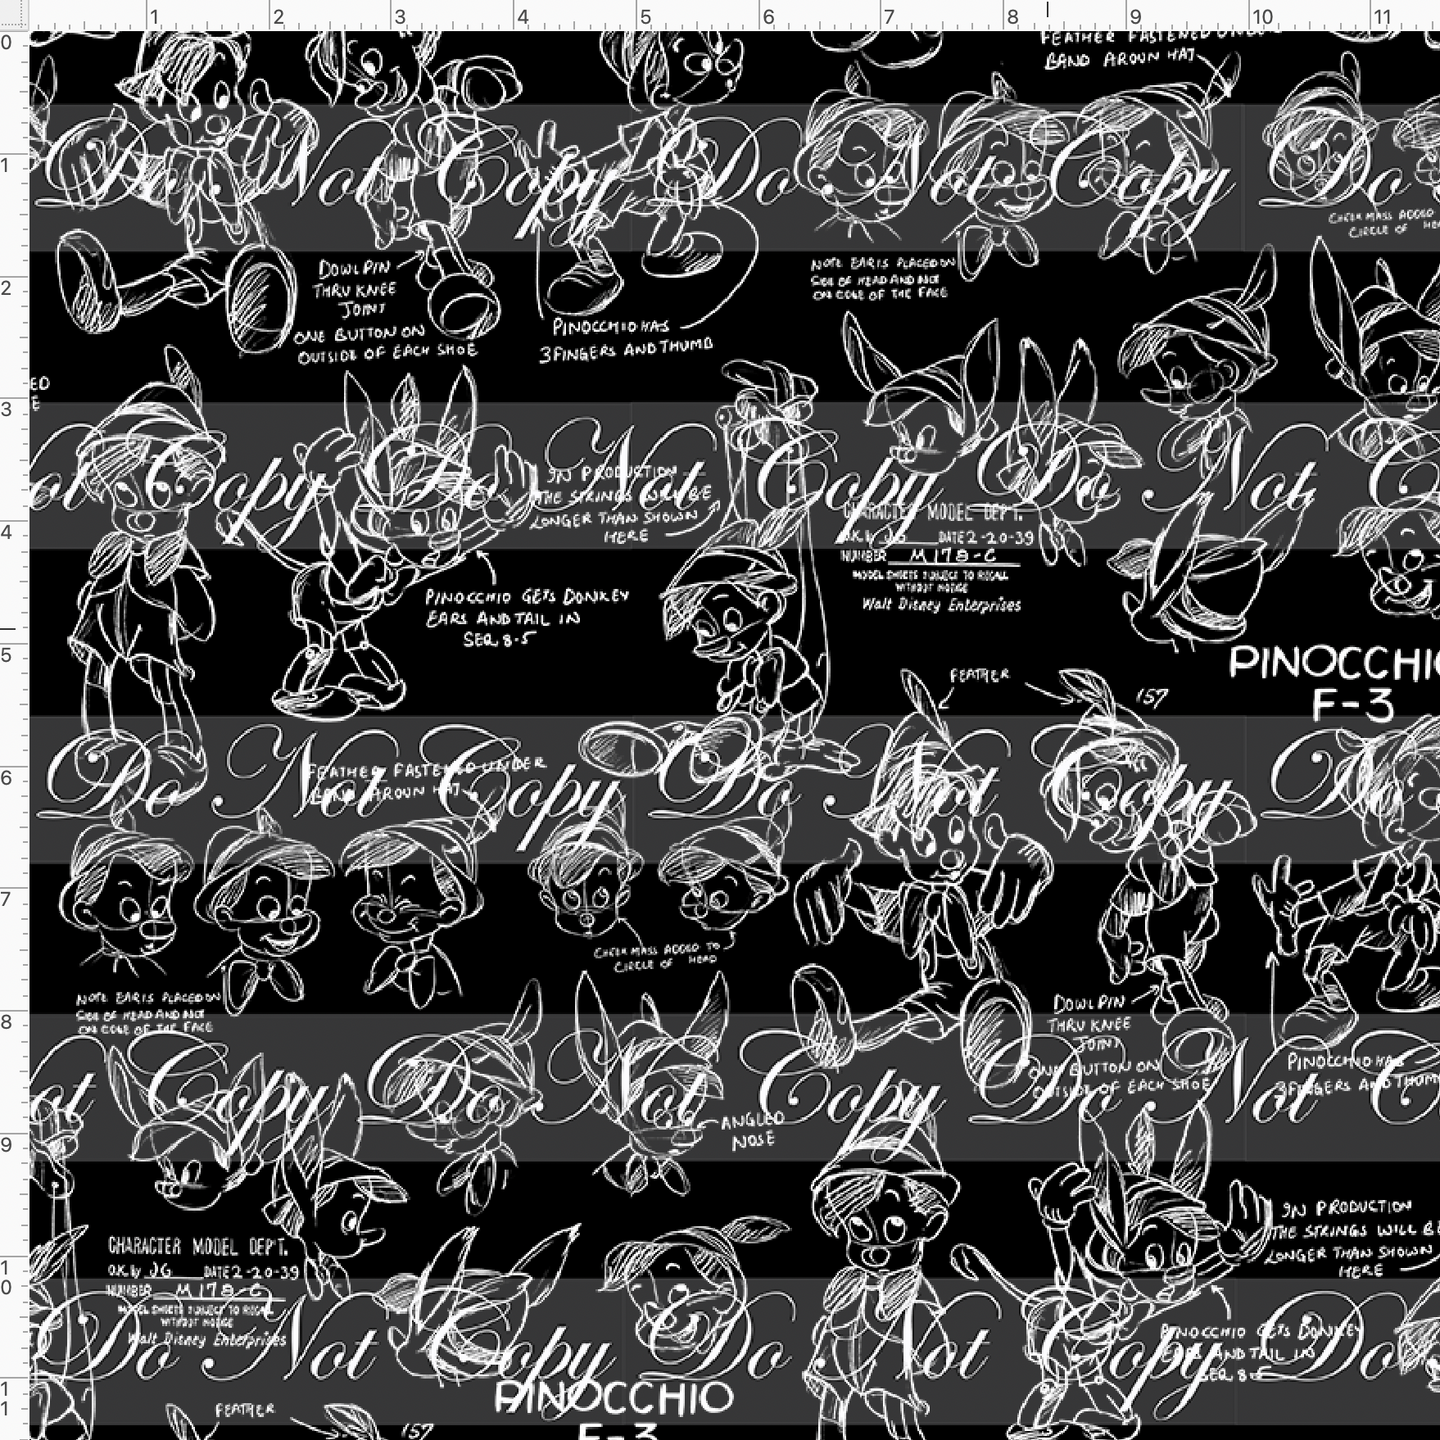 1 2 3 4 5 6 7 8 9 10 11
0
FEATHER FASTENED UNDER
BAND AROUN HAT
1
Do Not Copy Do Not Copy Do
CHEEK MASS ADDED
CIRCLE OF HEA
2
DOWL PIN
THRU KNEE
JOINT
ONE BUTTON ON
OUTSIDE OF EACH SHOE
PINOCCHIO HAS
3 FINGERS AND THUMB
NOTE EAR IS PLACED ON
SIDE OF HEAD AND NOT
ON EDGE OF THE FACE
ED
E
3
ot Copy Do Not Copy Do Not C
IN PRODUCTION
THE STRINGS WILL BE
LONGER THAN SHOWN
HERE
4
CHARACTER MODEL DEP'T.
O.K. by JG DATE 2-20-39
NUMBER M178-C
MODEL SHEETS SUBJECT TO RECALL
WITHOUT NOTICE
Walt Disney Enterprises
PINOCCHIO GETS DONKEY
EARS AND TAIL IN
SEQ 8-5
5
PINOCCHIO
F-3
FEATHER
157
6
Do Not Copy Do Not Copy Do
FEATHER FASTENED UNDER
BAND AROUN HAT
7
CHEEK MASS ADDED TO
CIRCLE OF HEAD
NOTE EAR IS PLACED ON
SIDE OF HEAD AND NOT
ON EDGE OF THE FACE
DOWL PIN
THRU KNEE
JOINT
ONE BUTTON ON
OUTSIDE OF EACH SHOE
PINOCCHIO HAS
3 FINGERS AND THUM
8
ot Copy Do Not Copy Do Not C
ANGLED
NOSE
9
IN PRODUCTION
THE STRINGS WILL BE
LONGER THAN SHOWN
HERE
CHARACTER MODEL DEP'T.
O.K. by JG DATE 2-20-39
NUMBER M178-C
MODEL SHEETS SUBJECT TO RECALL
WITHOUT NOTICE
Walt Disney Enterprises
10
Do Not Copy Do Not Copy Do
PINOCCHIO GETS DONKEY
EARS AND TAIL IN
SEQ 8-5
11
PINOCCHIO
F-3
FEATHER
157